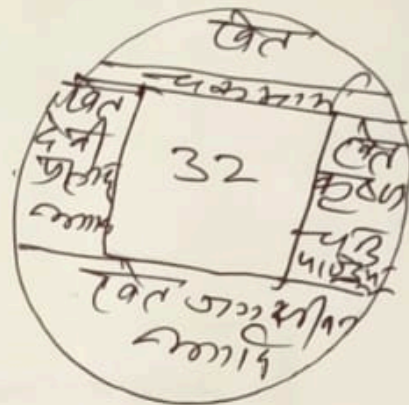 खेत
चकमार्ग
खेत
देवी
प्रसाद
आदि
32
खेत
कृष्ण
चन्द्र
पाण्डेय
खेत जगजीवन
आदि